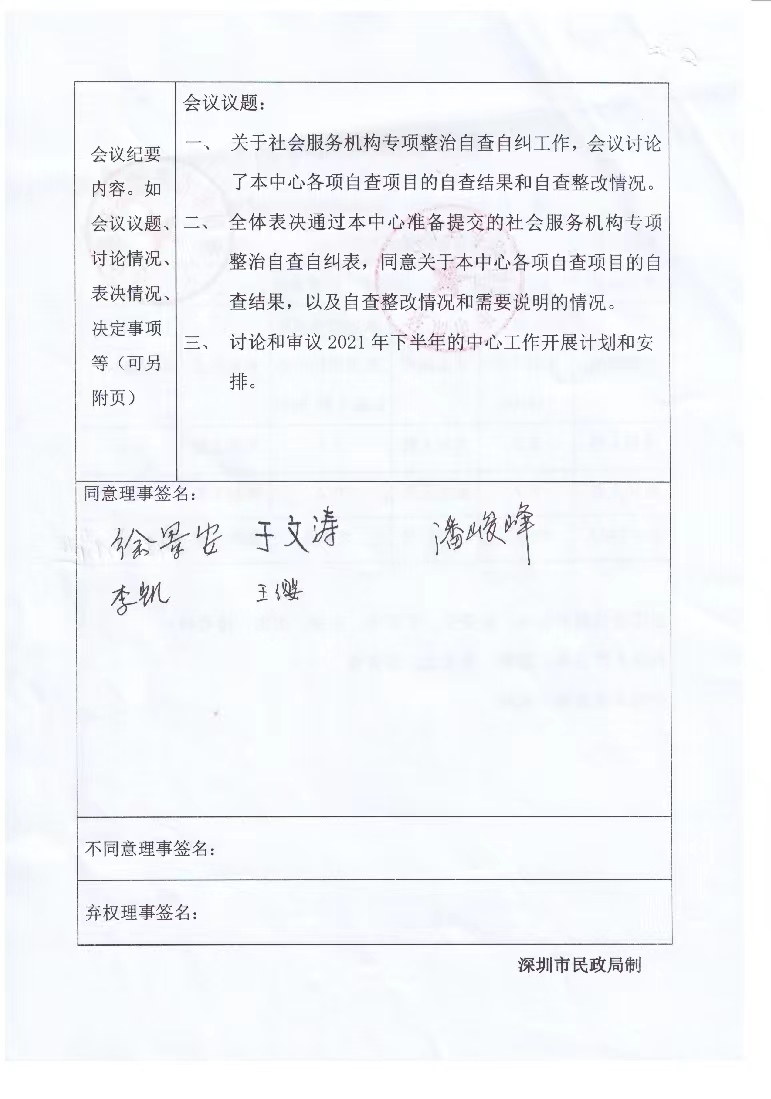 会议议题：
一、 关于社会服务机构专项整治自查自纠工作，会议讨论
了本中心各项自查项目的自查结果和自查整改情况。
二、 全体表决通过本中心准备提交的社会服务机构专项
整治自查自纠表，同意关于本中心各项自查项目的自
查结果，以及自查整改情况和需要说明的情况。
三、 讨论和审议 2021 年下半年的中心工作开展计划和安
排。
会议纪要
内容。如
会议议题、
讨论情况、
表决情况、
决定事项
等（可另
附页）
同意理事签名：
徐景安 于文涛 潘峻峰
李凯 王缨
不同意理事签名：
弃权理事签名：
深圳市民政局制